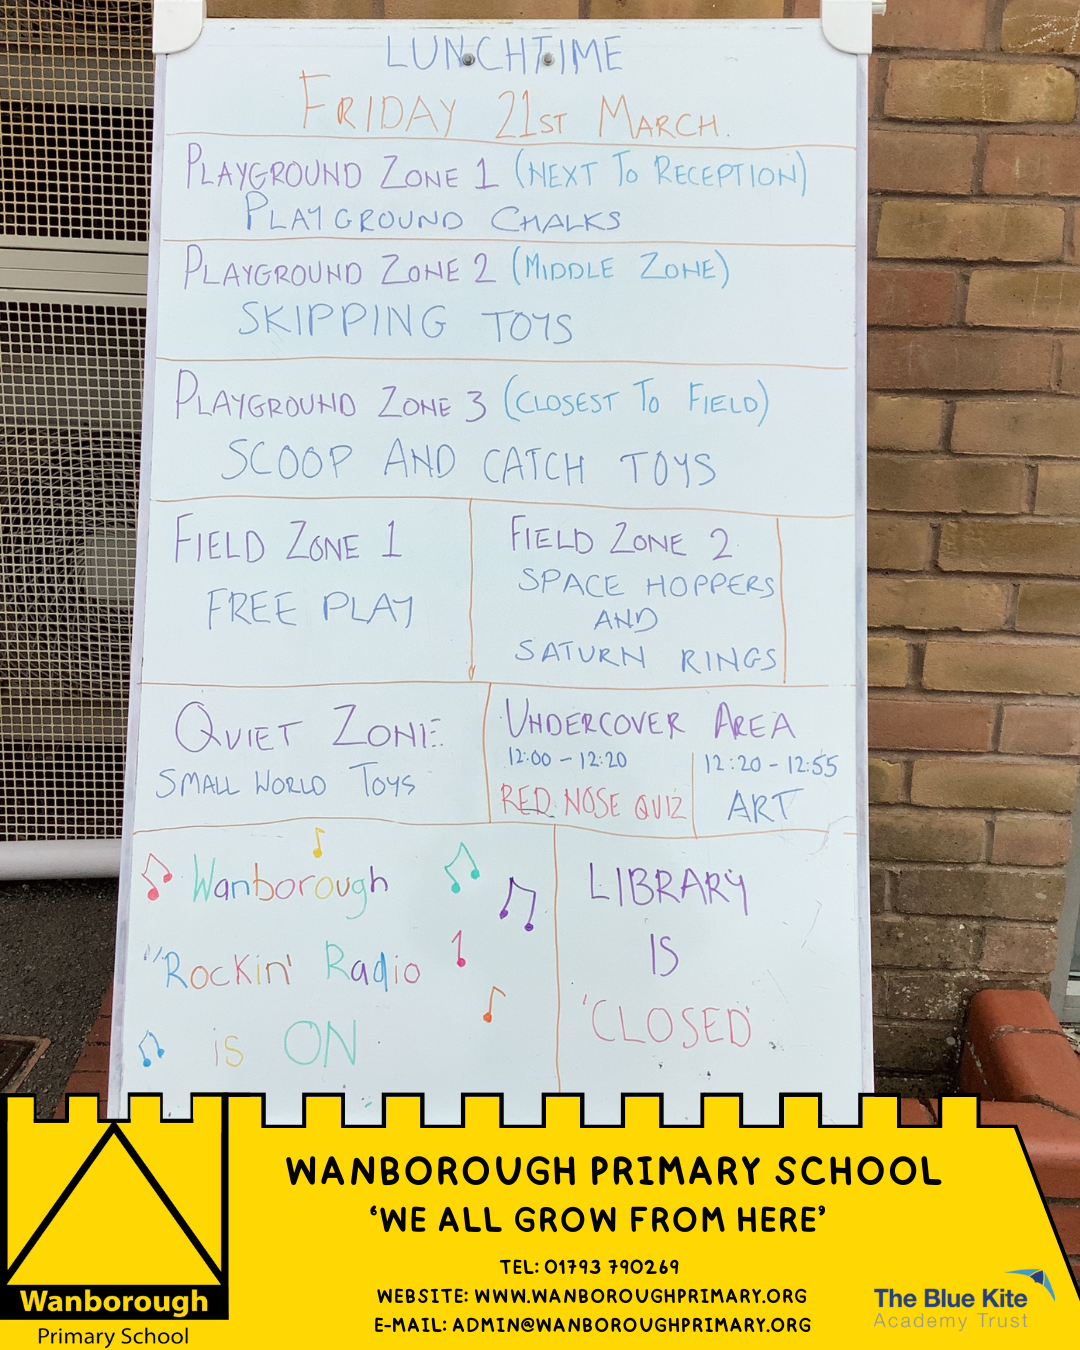 LUNCHTIME
FRIDAY 21ST MARCH.
PLAYGROUND ZONE 1 (NEXT TO RECEPTION)
PLAYGROUND CHALKS
PLAYGROUND ZONE 2 (MIDDLE ZONE)
SKIPPING TOYS
PLAYGROUND ZONE 3 (CLOSEST TO FIELD)
SCOOP AND CATCH TOYS
FIELD ZONE 1
FREE PLAY
FIELD ZONE 2
SPACE HOPPERS
AND
SATURN RINGS
QUIET ZONE
SMALL WORLD TOYS
UNDERCOVER AREA
12:00 - 12:20
RED NOSE QUIZ
12:20 - 12:55
ART
Wanborough
"Rockin' Radio
is ON
LIBRARY
IS
'CLOSED'
WANBOROUGH PRIMARY SCHOOL
'WE ALL GROW FROM HERE'
TEL: 01793 790269
WEBSITE: WWW.WANBOROUGHPRIMARY.ORG
E-MAIL: ADMIN@WANBOROUGHPRIMARY.ORG
Wanborough
Primary School
The Blue Kite
Academy Trust